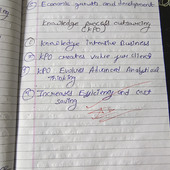 Economic growth and development
Knowledge process outsourcing
(KPO)
① Knowledge Intensive Business
② KPO creates value
KPO Evolves Advanced Analytical
thinking
Increases Efficiency and cost
saving